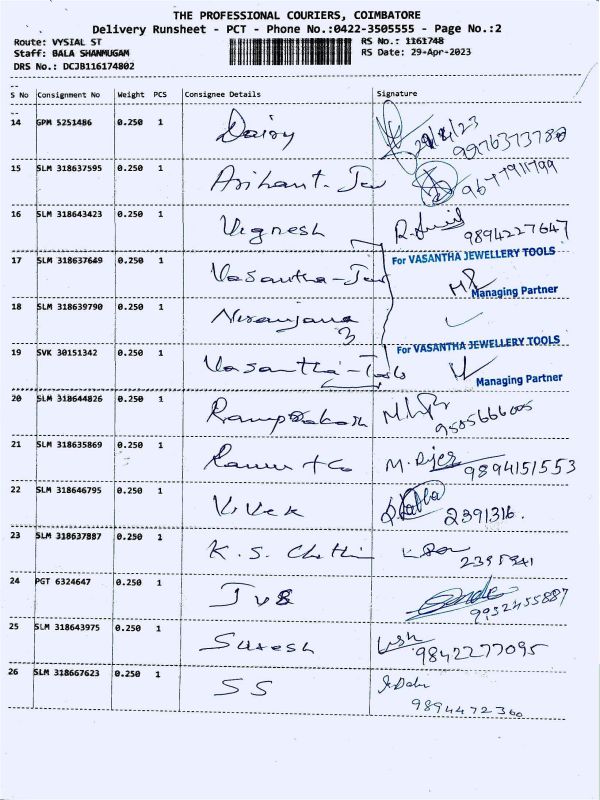 THE PROFESSIONAL COURIERS, COIMBATORE
Delivery Runsheet - PCT - Phone No.:0422-3505555 - Page No.:2
Route: VYSIAL ST RS No.: 1161748
Staff: BALA SHANMUGAM RS Date: 29-Apr-2023
DRS No.: DCJB116174802
S No Consignment No Weight PCS Consignee Details Signature
14 GPM 5251486 0.250 1 Dairy 29/4/23
15 SLM 318637595 0.250 1 Arihant-Jew
16 SLM 318643423 0.250 1 Vignesh
9894227647
17 SLM 318637649 0.250 1 Vasantha-Jew For VASANTHA JEWELLERY TOOLS
Managing Partner
18 SLM 318639790 0.250 1 Niranjana
3
19 SVK 30151342 0.250 1 Vasantha-Tools For VASANTHA JEWELLERY TOOLS
Managing Partner
20 SLM 318644826 0.250 1 Ramprakash
9505666005
21 SLM 318635869 0.250 1 Ramu + Co 9894151553
22 SLM 318646795 0.250 1 Vivek 2391316.
23 SLM 318637887 0.250 1 K.S. Chetti
2395941
24 PGT 6324647 0.250 1 JVB
9952455887
25 SLM 318643975 0.250 1 Suresh
9842277095
26 SLM 318667623 0.250 1 SS
9894472360